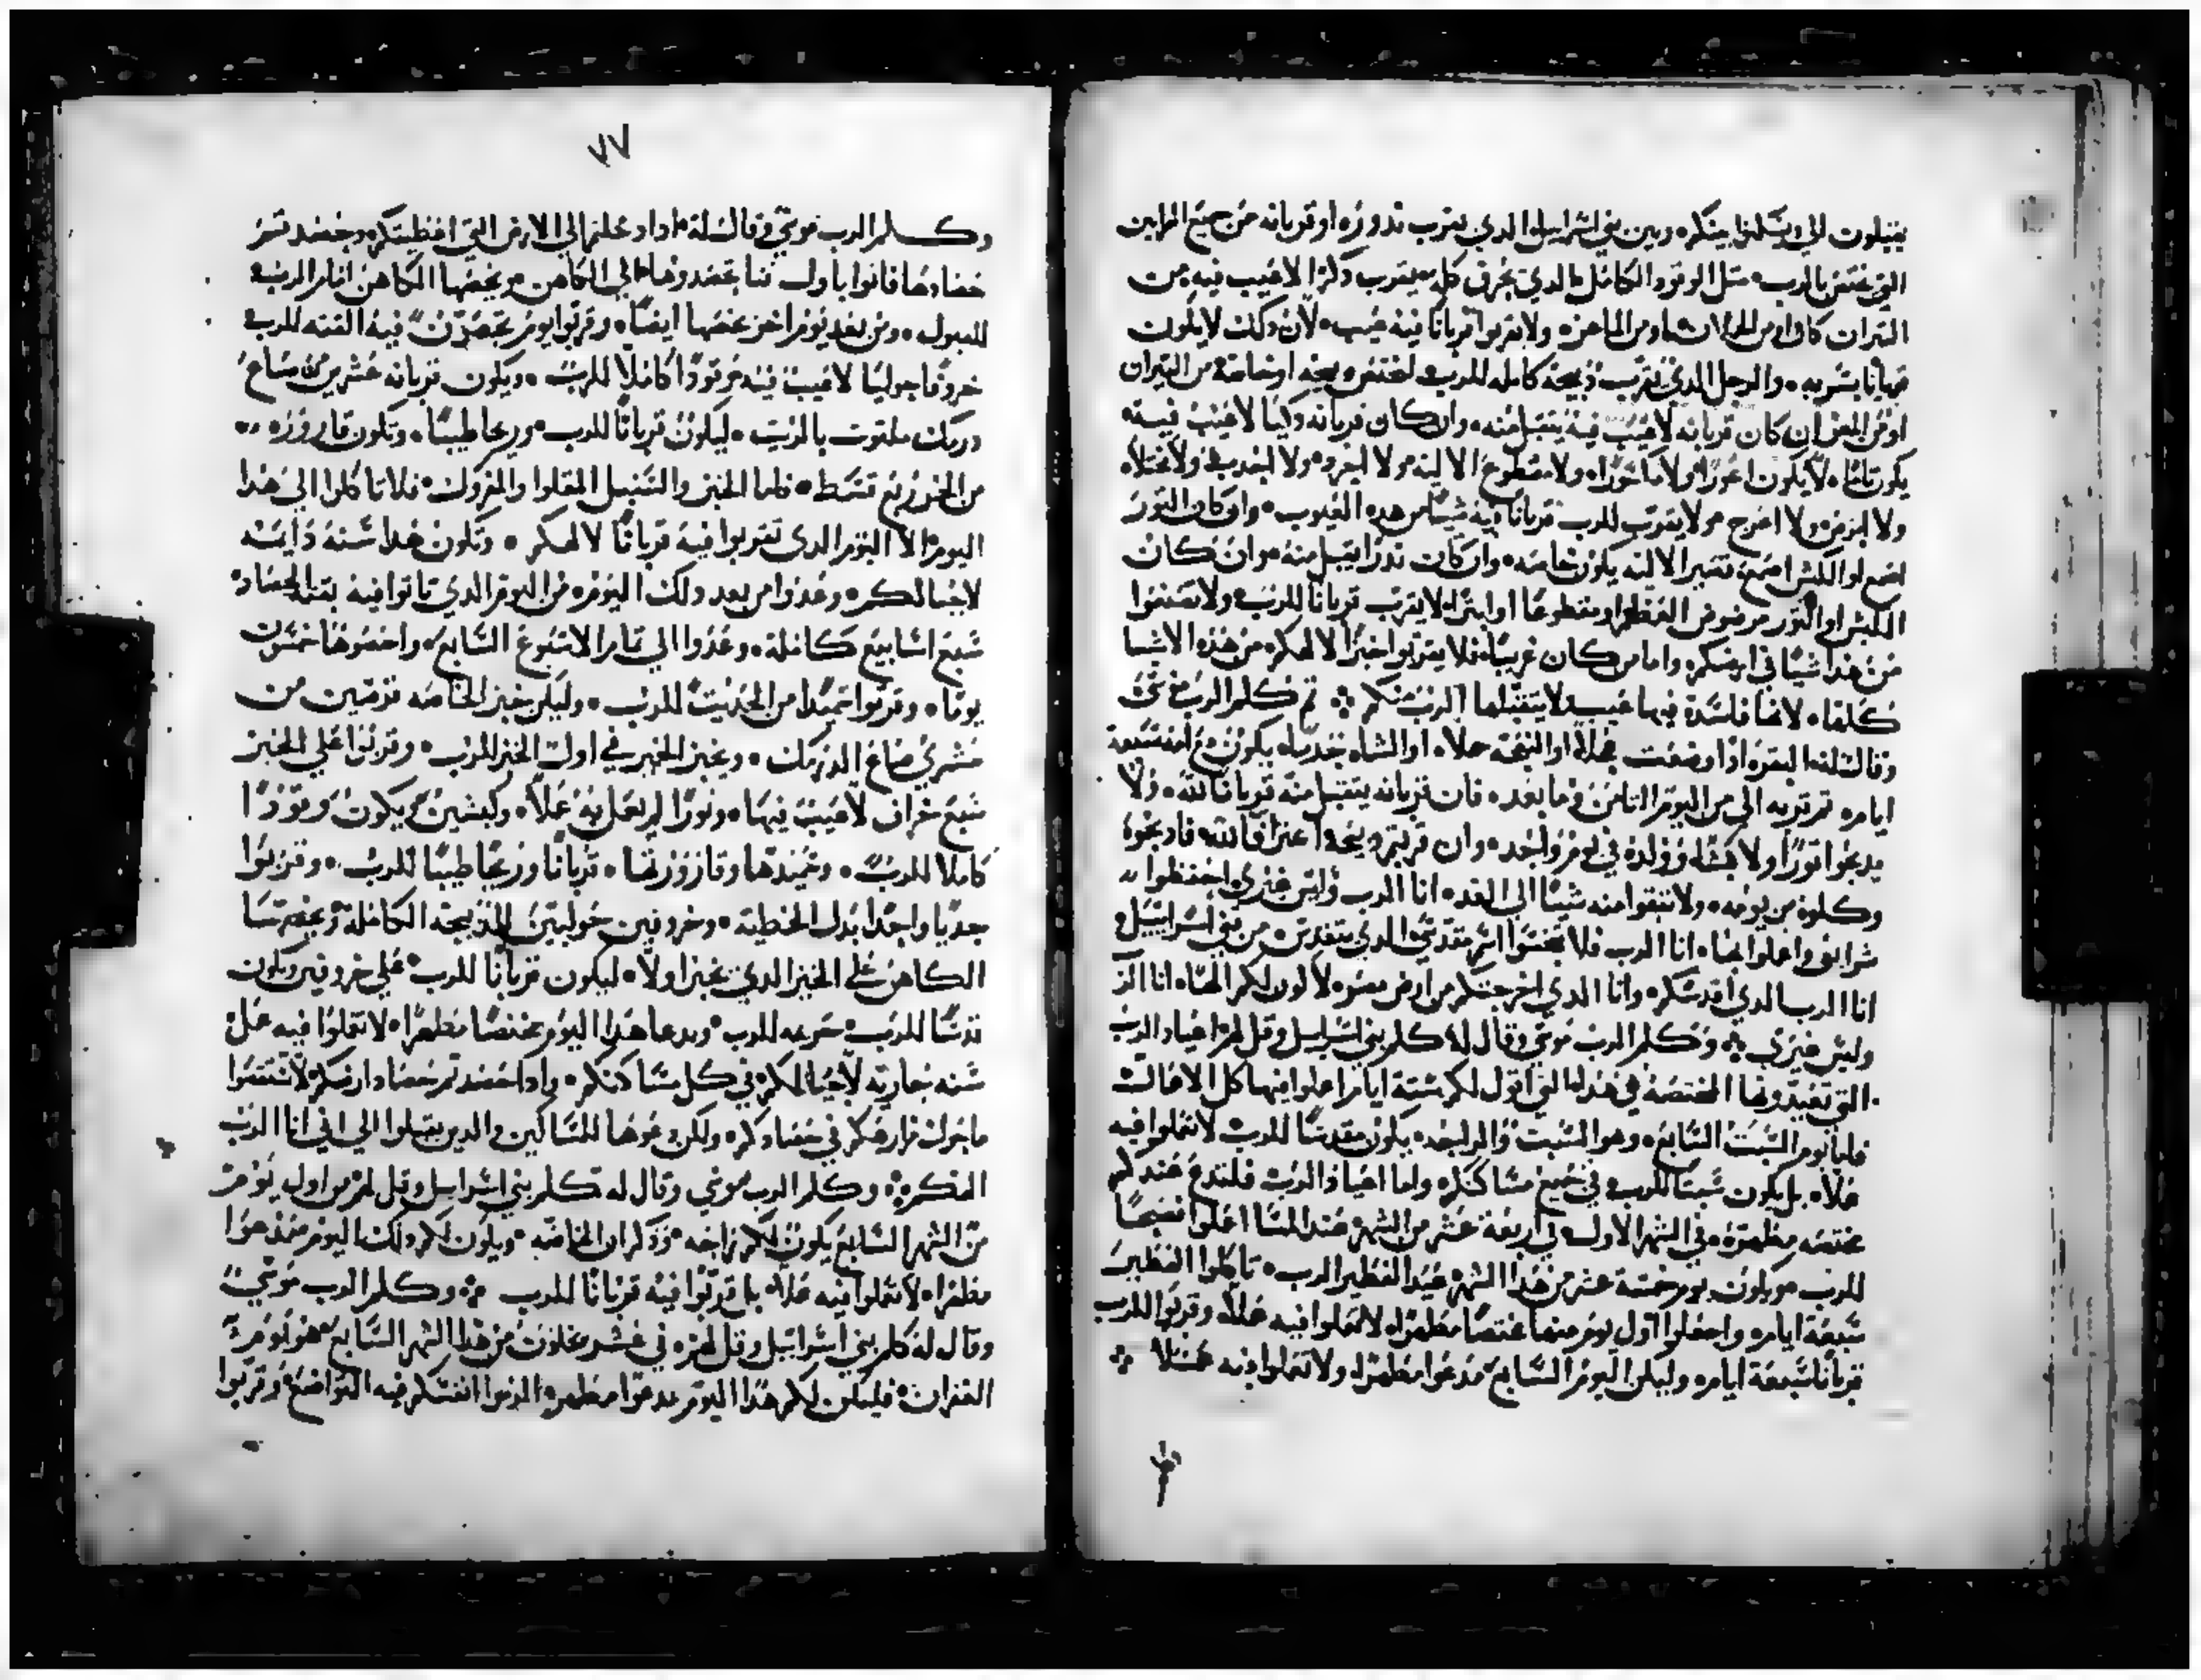 يقبلون الي ويسلموا بينكم وبين بني اسراييل الذي يقرب ندوره او قربانه من جميع القرابين
التي تختص بالرب مثل الوقود الكامل الدي يحرق كله يقرب دكرا لا عيب فيه من
التيران كان او من الحملان او من الماعز ولا يقربوا قربانا فيه عيب لان دلك لا يكون
قربانا يسر به والرجل الدي يقرب دبيحة كامله للرب لتختص وبيحه او خاصة من التيران
او من المعز ان كان قربانه لا عيب فيه يتقبل منه وان كان قربانه دكيا لا عيب فيه
يكون تاما لا يكون اعورا ولا مكسورا ولا مقطوع الالية ولا ولا ولا
ولا ابرص ولا اعرج ولا يقرب للرب قربانا فيه شيا من هده العيوب وان كان التور
او الكبش اصمع قصير الاليه يكون خاصه وان كان ندرا يقبل منه وان كان
الكبش او التور مرضوض او مقطوعا او ابتر لا يقرب قربانا للرب ولا تصنعوا
من هدا شيا في ارضكم واما من كان غريبا فلا يقربوا خبزا لالهكم من هذه الاشيا
كلها لانها فاسدة فيها عيب لا يتقبلها الرب منكم ثم كلم الرب موسى
وقال له البقره ادا وضعت عجلا او النعجه حملا او الشاه جديا يكون مع امه سبعة
ايام ثم تربه الي من اليوم التامن وما بعد فان قربانه يتقبل منه قربانا لله ولا
يدبحوا تورا ولا كبشا وولده في يوم واحد وان قربتم دبيحة اعترافا لله فادبحوه
وكلوه من يومه ولا تبقوا منه شيئا الى الغد انا الرب وليس غيري احفظوا
شرايعي واعملوا بها انا الرب فلا تنجسوا اسم مقدسي الدي يتقدس من بني اسراييل
انا الرب الدي اقدسكم وانا الدي اخرجتكم من ارض مصر لاكون لكم الها انا الرب
وليس غيري وكلم الرب موسي وقال له كلم بني اسراييل وقل لهم اعياد الرب
التي تعيدونها المختصة هي هده التي اقول لكم ستة ايام اعملوا فيها كل الاعمال
فاما يوم السبت السابع وهو السبت والراحه يكون مقدسا للرب لا تعملوا فيه
عملا بل يكون سبتا للرب في جميع مساكنكم واما اعياد الرب فلتدع عندكم
مختصه مطهره في الشهر الاول في اربعة عشر من الشهر عند المسا اعملوا فصحا
للرب ويكون يوم خمسة عشر من هدا الشهر عيد الفطير الرب تاكلوا الفطير
سبعة ايام واجعلوا اول يوم منها مختصا مطهرا لا تعملوا فيه عملا وقربوا للرب
قربانا سبعة ايام وليكن اليوم السابع مدعوا مطهرا ولا تعملوا فيه عملا
٧٧
وكلم الرب موسي وقال له ادا دخلتم الي الارض التي اعطيتكم وحصدتم
حصادها فاتوا باول ما تحصدوها الي الكاهن ويخصها الكاهن امام الرب
للقبول ومن بعد يوم اخر يخصها ايضا وقربوا يوم تختصون فيه الفته للرب
خروفا حوليا لا عيب فيه وقودا كاملا للرب ويكون قربانه عشرين صاع
درمك ملتوت بالزيت ليكون قربانا للرب وريحا طيبا وتكون قاروره
من الخمر ربع قسط فاما الخبز والسنبل المقلوا والمفروك فلا تاكلوا الي هدا
اليوم الا اليوم الدي تقربوا فيه قربانا لالهكم وتكون هدا سنة دايمه
لاجيالكم وعدوا من بعد دلك اليوم من اليوم الدي تاتوا فيه بقتة الحصاد
سبع اسابيع كاملة وعدوا الي تمام الاسبوع السابع واحصوها خمسون
يوما وقربوا سميدا من الحديت للرب وليكن خبز الخاصه قرصين من
عشري صاع الدرمك ويخبز الخمير في اول الخبز للرب وقربوا علي الخبز
سبع خراف لا عيب فيها وتورا لم يعمل به عملا وكبشين ويكون وقودا
كاملا للرب وسميدها وقارورتها قربانا وريحا طيبا للرب وقربوا
جديا واحدا بدل الخطيه وخروفين حوليين الدبيحه الكاملة ويختصها
الكاهن علي الخبز الدي يخبز اولا ليكون قربانا للرب علي خروفين ويكون
قدسا للرب للرب ويدعا هدا اليوم مختصا مطهرا لا تعملوا فيه عمل
سنه جاريه لاجيالكم في كل مساكنكم وادا حصدتم حصاد ارضكم لا تستتموا
ما حول مزارعكم في حصادكم ولكن دعوها للمساكين والدين يقبلوا الي اني انا الرب
الهكم وكلم الرب موسي وقال له كلم بني اسراييل وقل لهم من اول يوم
من الشهر السابع يكون لكم راحه ودكران الخاصه ويكون لكم دلك اليوم مدعوا
مطهرا لا تعملوا فيه عملا بل قربوا فيه قربانا للرب وكلم الرب موسي
وقال له كلم بني اسراييل وقل لهم في عشر يخلون من هدا الشهر السابع هو يوم
الغفران فليكن لكم هدا اليوم مدعوا مطهرا الزموا انفسكم فيه التواضع وقربوا